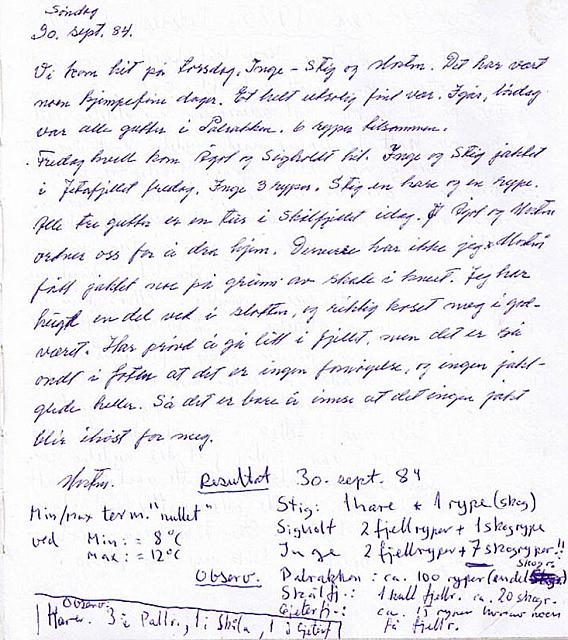 Søndag
30. sept. 84.
Vi kom hit på torsdag, Inge - Stig og Det har vært
noen kjempefine dager. Et helt utrolig fint vær. Igår, lørdag
var alle gutta i Dalrakken. 6 ryper tilsammen.
Fredag kveld kom og Sigholdt hit. Inge og Stig jaktet
i fredag. Inge 3 ryper. Stig en hare og en rype.
Alle tre gutta er en tur i Skålfjellet idag. og
ordner oss for å dra hjem. Desverre har ikke jeg
fått jaktet noe på grunn av skade i kneet. Jeg har
hugd en del ved i sloften, og riktig koset meg i god-
været. Har prøvd å gå litt i fjellet, men det er så
ondt i foten at det er ingen fornøyelse, og ingen jakt-
glede heller. Så det er bare å innse at det ingen jakt
blir i høst for meg.
Resultat 30. sept. 84
Min/max term. "nullet"
ved Min: = 8°C
Max: = 12°C
Stig: 1 hare + 1 rype (skog)
Sigholt 2 fjellryper + 1 skogsrype
Inge 2 fjellryper + 7 skogsryper!!
Observ. Dalrakken: ca. 100 ryper (endel skogsr.
Skålfj-: 1 kull fjellr. ca. 20 skogr.
Gjeterfj-: ca. 15
få fjellr.
Observ:
Harer. 3 i Dallr., 1 i Skåla, 1 i Gjeterf